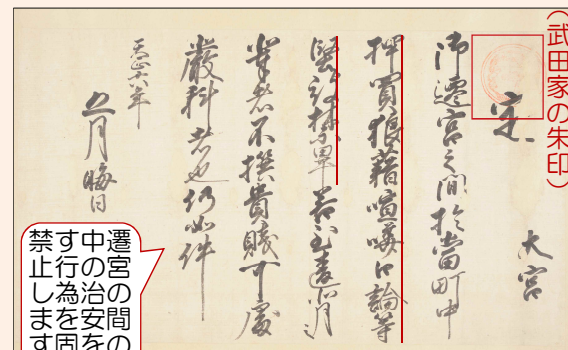 (武田家の朱印)
定
大宮
御遷宮之間於當町中
押買狼藉喧嘩口論等
堅被禁畢若至違犯
輩者不撰貴賤可處
嚴科者也仍如件
天正六年
二月晦日
遷宮の間の
中の治安を
す行為を固
禁止します